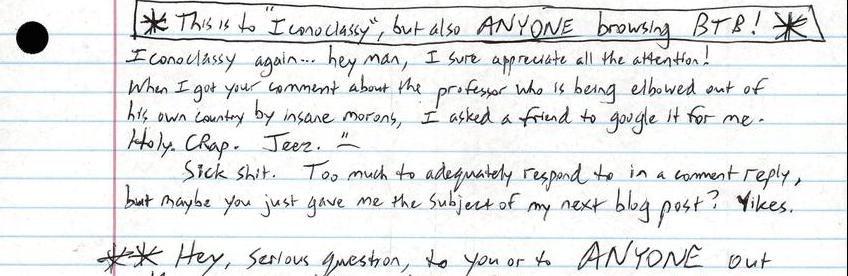 * This is to "Iconoclassy", but also ANYONE browsing BTB! *
Iconoclassy again... hey man, I sure appreciate all the attention!
When I got your comment about the professor who is being elbowed out of
his own country by insane morons, I asked a friend to google it for me.
Holy. CRap. Jeez.
Sick shit. Too much to adequately respond to in a comment reply,
but maybe you just gave me the subject of my next blog post? Yikes.
** Hey, serious question, to you or to ANYONE out